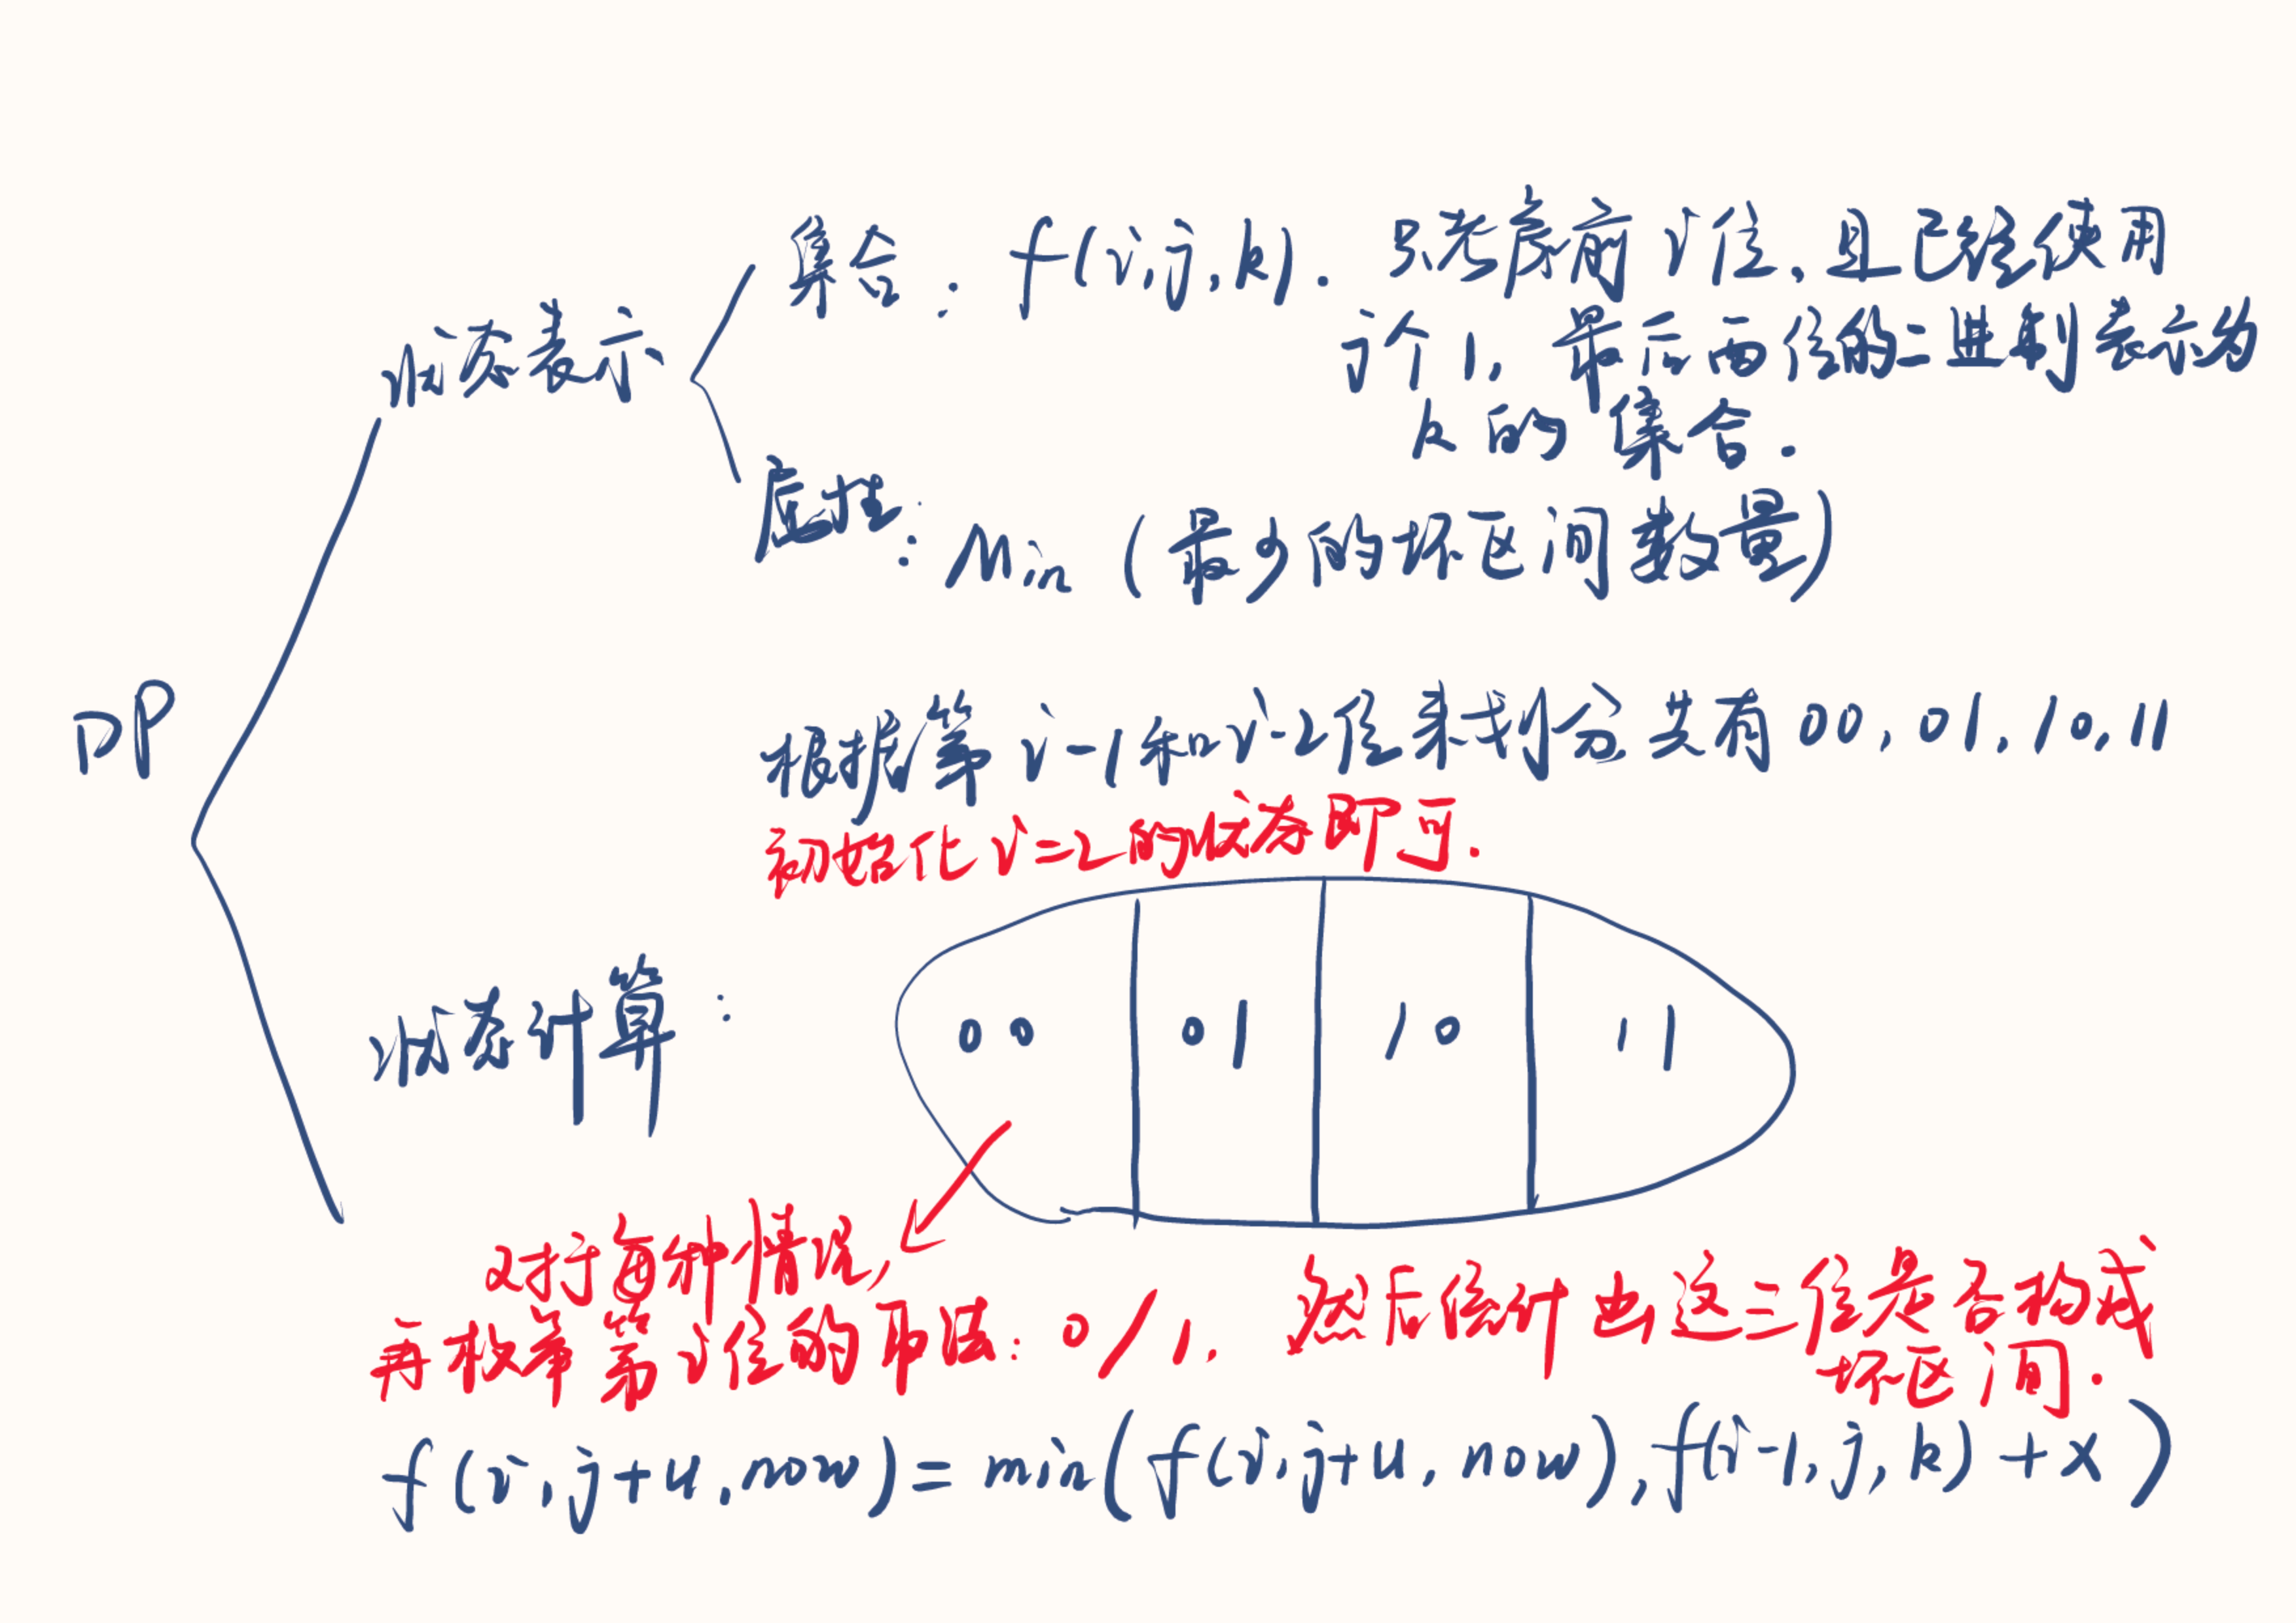 DP
状态表示
集合: f(i,j,k). 只考虑前i位,且已经使用
j个1,最后两位的二进制表示为
k的集合.
属性: Min (最少的坏区间数量)
根据第i-1和i-2位来划分 共有00,01,10,11
初始化i=2的状态即可.
状态计算:
00 01 10 11
对于每种情况,
再枚举第i位的取法: 0/1, 然后统计出这三位是否构成
坏区间.
f(i,j+u,now)=min(f(i,j+u,now),f(i-1,j,k)+x)